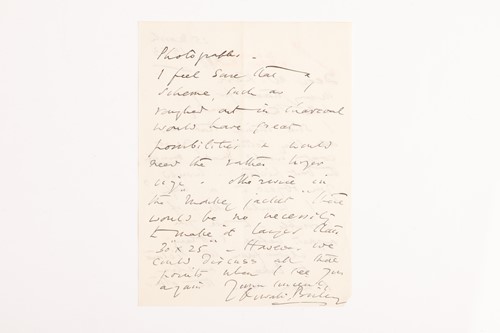 Photographs.
I feel sure that a
scheme, such as I
roughed out in charcoal
would have great
possibilities & would
need the rather larger
size. Otherwise in
the "Monkey jacket" there
would be no necessity
to make it larger than
30" x 25" - However we
could discuss all these
points when I see you
again Yours sincerely
Oswald Birley